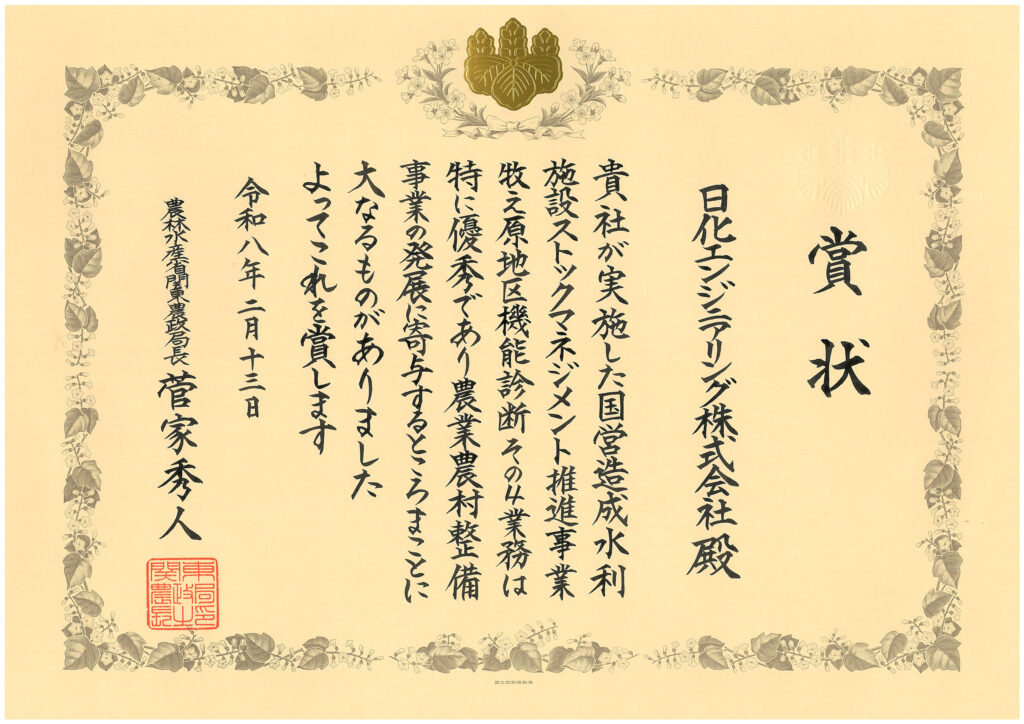 賞状
日化エンジニアリング株式会社 殿
貴社が実施した国営造成水利
施設ストックマネジメント推進事業
牧之原地区機能診断その4業務は
特に優秀であり農業農村整備
事業の発展に寄与するところまことに
大なるものがありました
よってこれを賞します
令和八年二月十三日
農林水産省関東農政局長 菅家秀人